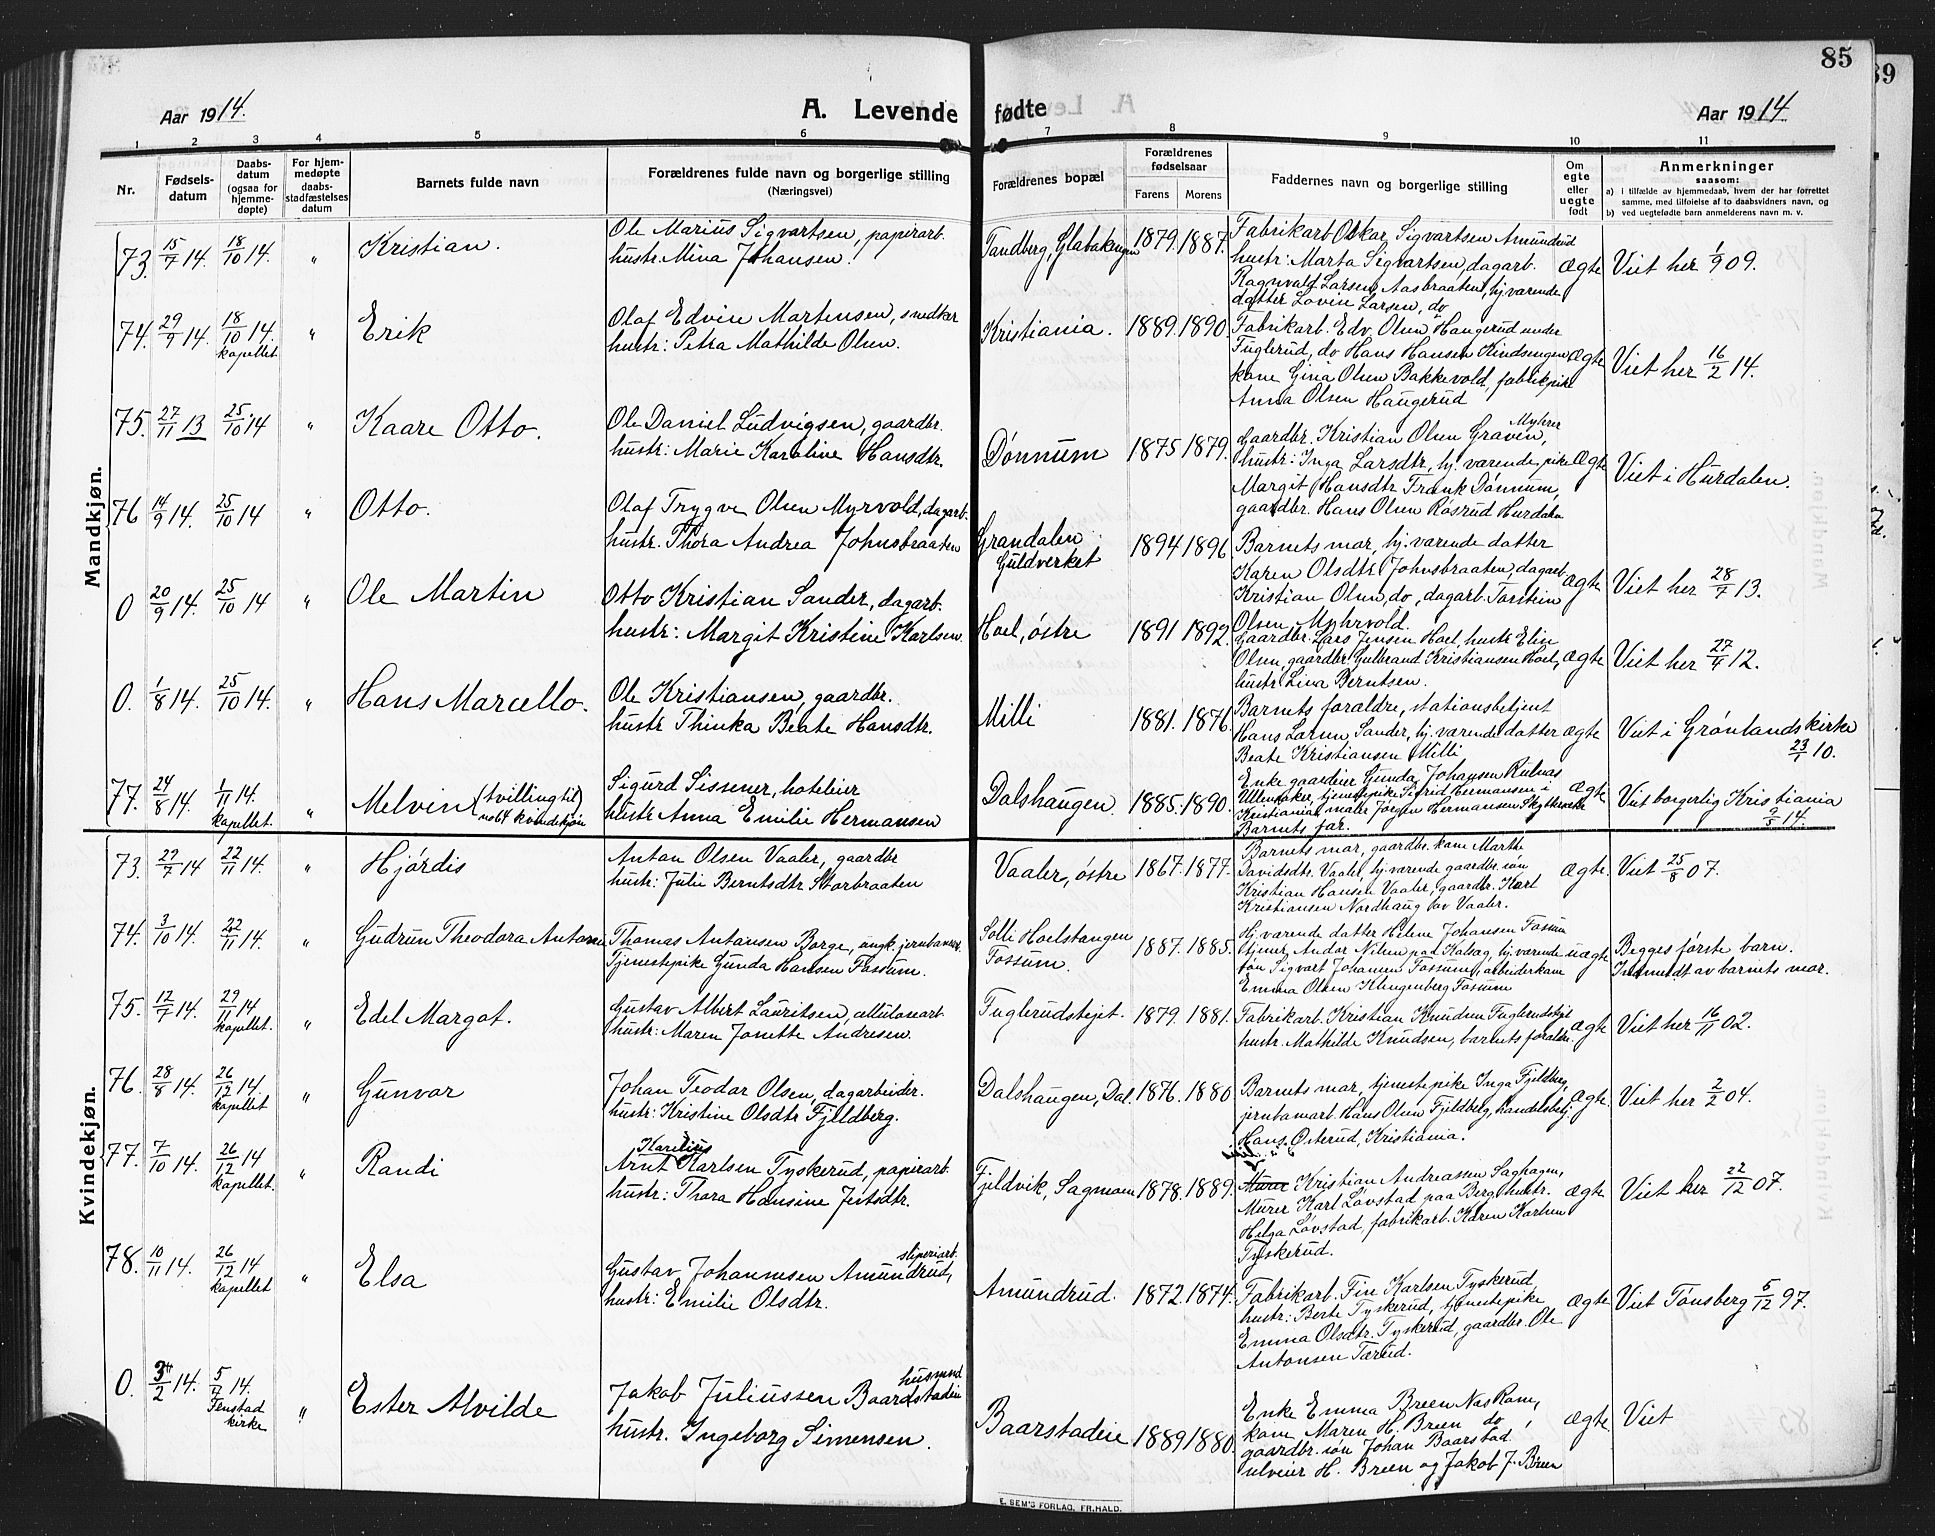 85
39
Aar 1914.
A. Levende fødte
Aar 1914
1 2 3 4 5 6 7 8 9 10 11
Nr.
Fødsels-
datum
Daabs-
datum
(ogsaa for
hjemme-
døpte)
For hjem-
medøpte
daabs-
stadfæstelses
datum
Barnets fulde navn
Forældrenes fulde navn og borgerlige stilling
(Næringsvei)
Forældrenes bopæl
Forældrenes
fødselsaar
Farens Morens
Faddernes navn og borgerlige stilling
Om
egte
eller
uegte
født
Anmerkninger
saasom:
a) i tilfælde av hjemmedaab, hvem der har forrettet
samme, med tilføielse af to daabsvidners navn, og
b) ved uegtefødte barn anmelderens navn m. v.
Mandkjøn.
73. 15/7 14. 18/10 14. " Kristian.
Ole Marius Sigvartsen, papirarb.
hustr. Mina Johansen.
Tandberg, Glabakengen 1879. 1887.
Fabrikarb. Oskar Sigvartsen Amundrud
hustr: Marta Sigvartsen, dagarb.
Ragnvald Larsen Aasbraaten, hj. værende
datter Lovise Larsen, do
Ægte Viet her 1/9 09.
74. 29/9 14. 18/10 14. kapellet " Erik
Olaf Edvin Martensen, snedker
hustr: Petra Mathilde Olsen.
Kristiania. 1889. 1890.
Fabrikarb. Edv. Olsen Haugerud under
Fuglerud, do Hans Hansen Kindsengen
kone Gina Olsen Bakkevold, fabrikpike
Anna Olsen Haugerud
Ægte Viet her 16/2 14.
75. 27/11 13 25/10 14 " Kaare Otto.
Ole Daniel Ludvigsen, gaardbr.
hustr: Marie Karoline Hansdtr.
Dønnum 1875 1879.
Gaardbr. Kristian Olsen Graven, Myhrer
hustr: Inga Larsdtr, hj. værende pike
Margit Hansdtr Frank Dønnum,
gaardbr. Hans Olsen Røsrud Hurdalen
Ægte Viet i Hurdalen.
76 14/9 14. 25/10 14 " Otto.
Olaf Trygve Olsen Myrvold, dagarb.
hustr. Thora Andrea Johnsbraaten
Grandalen
Guldverket 1894 1896
Barnets mor, hj. værende datter
Karen Olsdtr Johnsbraaten, dagarb
Kristian Olsen, do, dagarb. Torstein
Olsen Myhrvold.
Ægte Viet her 28/7 13.
0 20/9 14. 25/10 14 " Ole Martin
Otto Kristian Sander, dagarb.
hustr: Margit Kristine Karlsen.
Hoel, østre 1891 1892
Gaardbr. Lars Jensen Hoel, hustr. Elise
Olsen, gaardbr. Gulbrand Kristiansen Hoel,
hustr Lina Berntsen.
Ægte Viet her 27/4 12.
0. 1/8 14. 25/10 14. " Hans Marcello.
Ole Kristiansen, gaardbr.
hustr Thinka Beate Hansdtr.
Milli 1881. 1876.
Barnets forældre, stationsbetjent
Hans Larsen Sander, hj. værende datter
Beate Kristiansen Milli
Ægte Viet i Grønlands kirke
23/1 10.
77. 24/8 14. 1/11 14. kapellet. " Melvin (tvilling til
no 64 kvindekjøn)
Sigurd Sissener, hoteleier
hustr. Anna Emilie Hermansen
Dalshaugen. 1885. 1890.
Enke gaardeier Gunda Johansen
Ullensaker, tjenestepike Sigrid Hermansen i
Kristiania, maler Jørgen Hermansen
Barnets far.
Ægte Viet borgerlig Kristiania
2/5 14.
Kvindekjøn.
73. 29/7 14 22/11 14. " Hjørdis
Anton Olsen Vaaler, gaardbr
hustr: Julie Berntsdtr Storbraaten
Vaaler, østre 1867. 1877.
Barnets mor, gaardbr. kone Marthe
Davidsdtr. Vaaler, hj. værende gaardbr. søn
Kristian Hansen Vaaler, gaardbr. Karl
Kristiansen Nordhaug av Vaaler.
Ægte. Viet 25/8 07.
74. 3/10 14. 22/11 14. " Gudrun Theodora Antonie
Thomas Antonsen Borge, ungk. jernbanearb.
Tjenestepike Gunda Hansen Fossum.
Solli Hoelstangen
Fossum. 1887. 1885.
Hj. værende datter Helene Johansen Fossum
Andor Nilsen paa Kalsag, hj. værende
søn Sigvart Johansen Fossum, arbeiderkone
Emma Olsen Klingenberg Fossum
uægte Begges første barn.
Indmeldt av barnets mor.
75. 12/7 14. 29/11 14 kapellet. " Edel Margot.
Gustav Albert Lauritsen, cellulosearb
hustr: Maren Jonette Andresen.
Fuglerudstejet. 1879. 1881.
Fabrikarb. Kristian Knudsen Fuglerudstejet
hustr. Mathilde Knudsen, barnets forældre.
Ægte Viet her 16/11 02.
76. 28/8 14. 26/12 14. kapellet " Gunvor
Johan Teodor Olsen, dagarbeider.
hustr: Kristine Olsdtr Fjeldberg.
Dalshaugen, Dal. 1876. 1880
Barnets mor, tjenestepike Inga Fjeldberg,
jernbanearb. Hans Olsen Fjeldberg, handelsbetj.
Hans Osterud, Kristiania.
Ægte. Viet her 2/2 04.
77. 7/10 14. 26/12 14 kapellet. " Randi
Karelius
Arnt Karlsen Tyskerud, papirarb.
hustr: Thora Hansine Jensdtr.
Fjeldvik, Sagmoen 1878. 1889.
Murer Kristian Andreassen Saghagen,
Murer Karl Løvstad paa Berg, hustr.
Helga Løvstad, fabrikarb. Karen Karlsen
Tyskerud.
Ægte Viet her 22/12 07.
78. 10/11 14. 26/12 14 kapellet " Elsa
sliperiarb.
Gustav Johannesen Amundrud,
hustr: Emilie Olsdtr.
Amundrud. 1872. 1874.
Fabrikarb. Finn Karlsen Tyskerud,
hustr: Berte Tyskerud, tjenestepike
Emma Olsdtr. Tyskerud, gaardbr. Ole
Antonsen Tærud.
Ægte Viet Tønsberg 5/12 97.
0. 3/2 14. 5/4 14. Fenstad kirke " Ester Alvilde
husmand
Jakob Juliussen Baardstadeie
hustr. Ingeborg Simensen.
Baarstadeie 1889 1880.
Enke Emma Breen Nes Rom,
kone Maren H. Breen do,
gaardbr. søn Johan Baarstad
H. Breen og Jakob J. Breen
Ægte Viet
E. SEM'S FORLAG, FR.HALD.